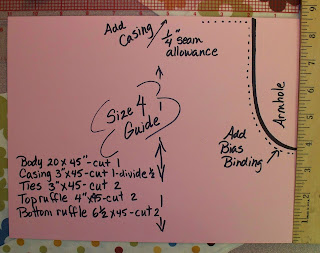 Add
Casing
1/4" seam
allowance
Size 4
Guide
Armhole
Add
Bias
Binding
Body 20 x 45"-cut 1
Casing 3"x45-cut 1-divide 1/2
Ties 3"x45-cut 2
Top ruffle 4"x45-cut 2
Bottom ruffle 6 1/2 x45-cut 2
9
8
7
6
5
4
3
2